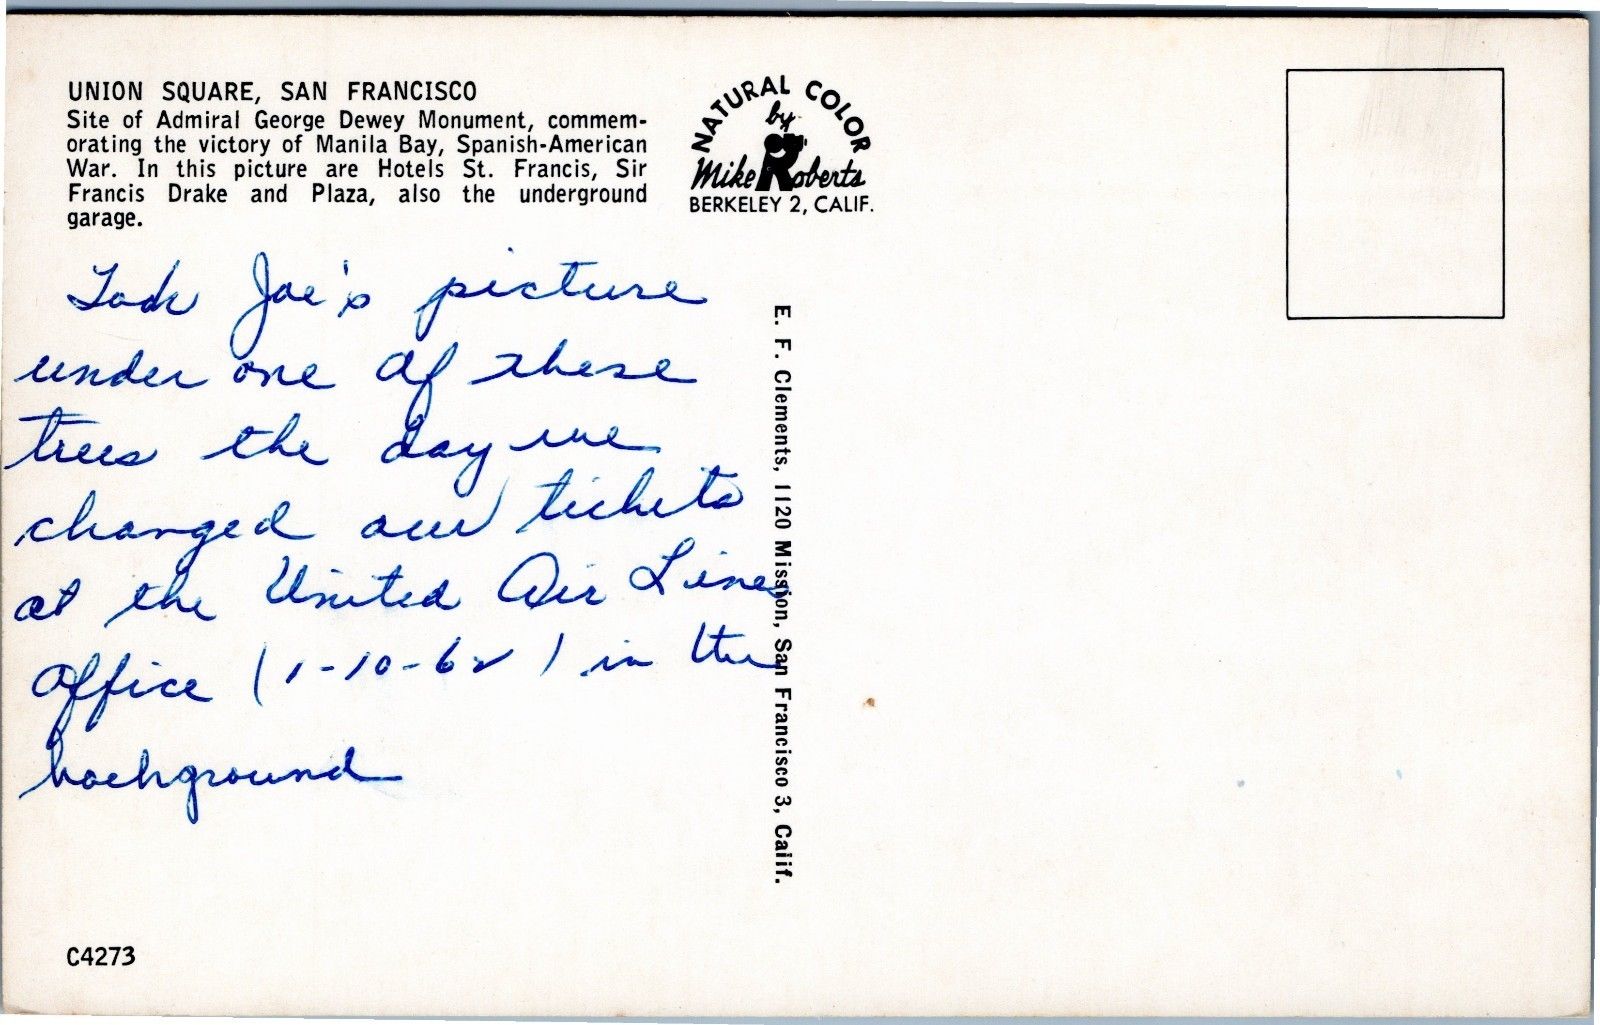 UNION SQUARE, SAN FRANCISCO
Site of Admiral George Dewey Monument, commem-
orating the victory of Manila Bay, Spanish-American
War. In this picture are Hotels St. Francis, Sir
Francis Drake and Plaza, also the underground
garage.
NATURAL COLOR
by
Mike Roberts
BERKELEY 2, CALIF.
Took Joe's picture
under one of these
trees the day we
changed our tickets
at the United Air Lines
office (1-10-62) in the
background
E. F. Clements, 1120 Mission, San Francisco 3, Calif.
C4273